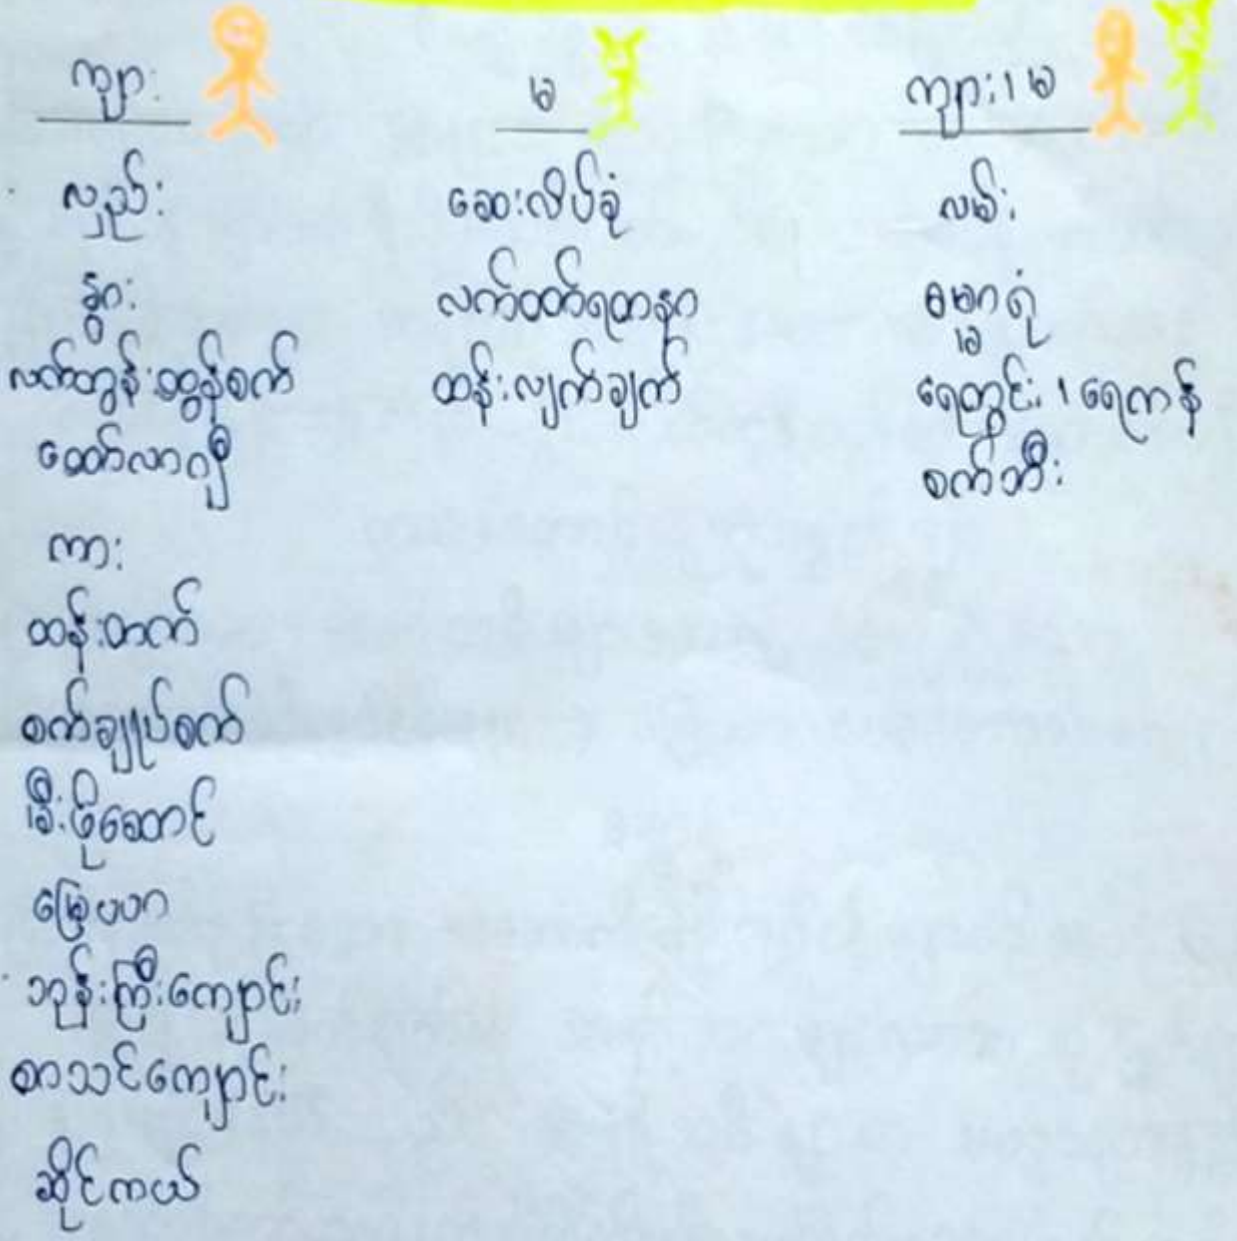 ကျား
လှည်း
နွား
လက်တွန်းထွန်စက်
ထော်လာဂျီ
ကား
ထန်းတက်
စက်ချုပ်စက်
မီးဖိုဆောင်
မြေပပဂ
ဘုန်းကြီးကျောင်း
စာသင်ကျောင်း
ဆိုင်ကယ်
မ
ဆေးလိပ်ခုံ
လက်ဝတ်ရတနာ
ထန်းလျက်ချက်
ကျား၊မ
လမ်း
ဓမ္မာရုံ
ရေတွင်း၊ရေကန်
စက်ဘီး